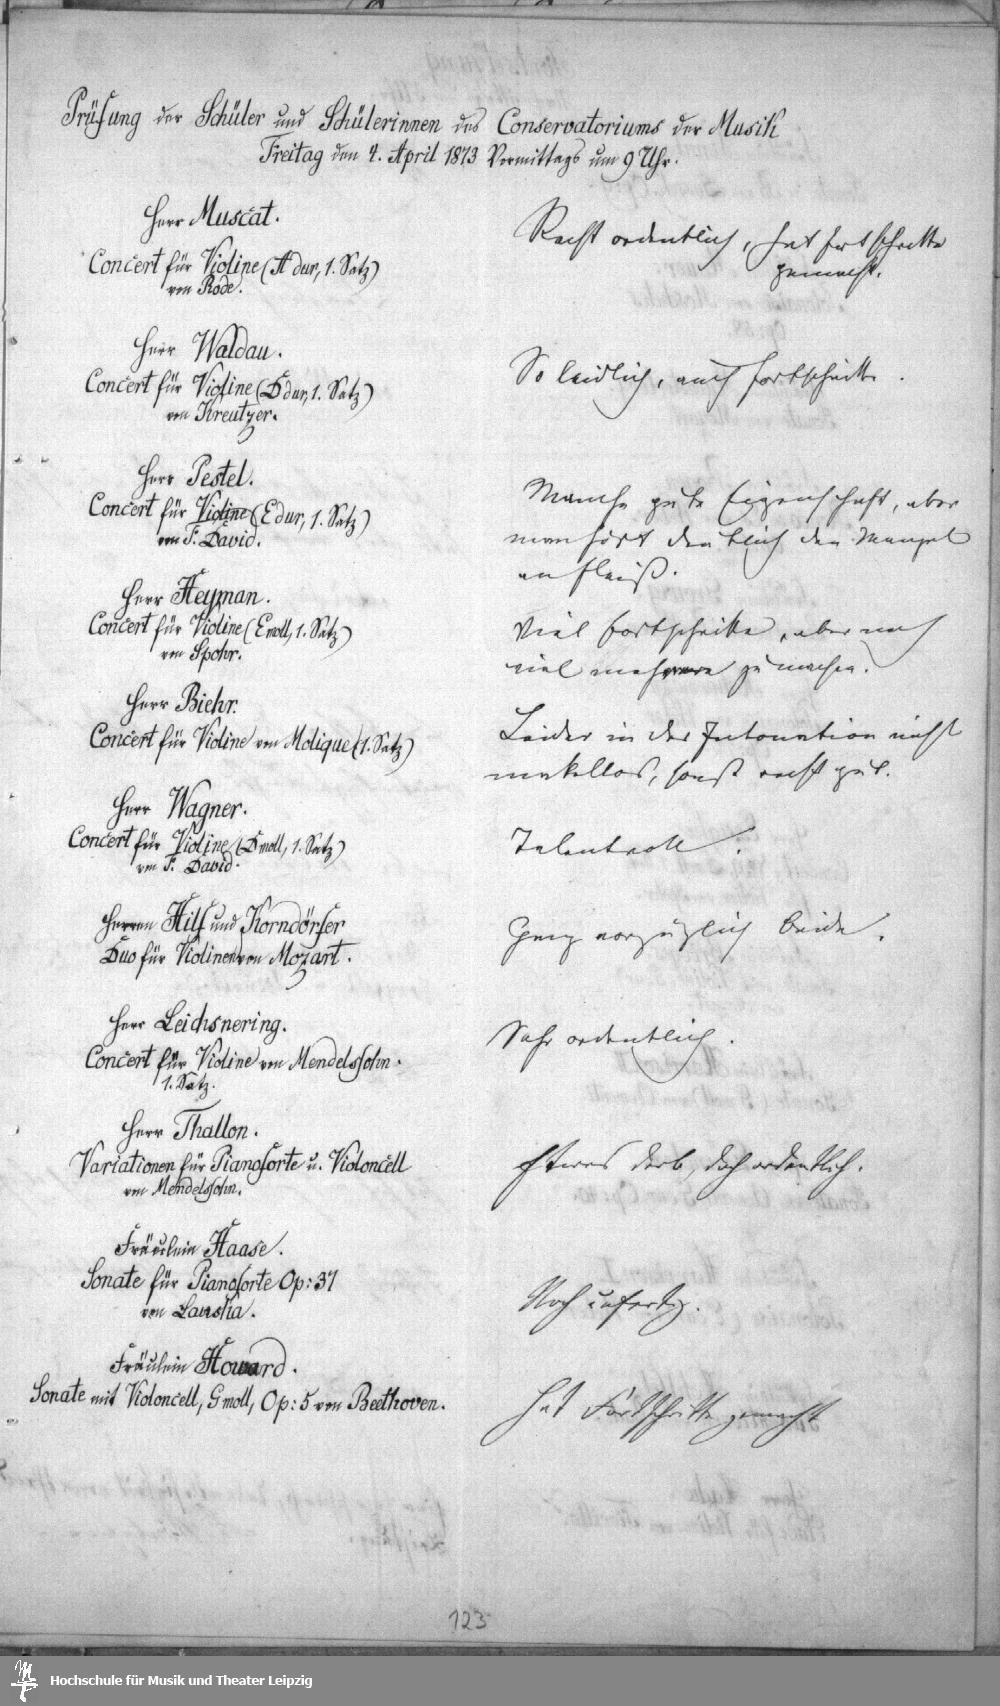 Prüfung der Schüler und Schülerinnen des Conservatoriums der Musik
Freitag den 4. April 1873 Vormittags um 9 Uhr.
Herr Muscat.
Concert für Violine (A dur, 1. Satz)
von Rode.
Recht ordentlich, hat Fortschritte
gemacht.
Herr Waldau.
Concert für Violine (D dur, 1. Satz)
von Kreutzer.
So leidlich, auch Fortschritte.
Herr Pestel.
Concert für Violine (E dur, 1. Satz)
von F. David.
Manche gute Eigenschaft, aber
man hört deutlich den Mangel
an Fleiß.
Herr Heyman.
Concert für Violine (E moll, 1. Satz)
von Spohr.
Viel Fortschritte, aber noch
viel mehrere zu machen.
Herr Biehr.
Concert für Violine von Molique (1. Satz)
Leider in der Intonation nicht
makellos, sonst recht gut.
Herr Wagner.
Concert für Violine (D moll, 1. Satz)
von F. David.
Talentvoll.
Herren Hilf und Korndörfer
Duo für Violinen von Mozart.
Ganz vorzüglich beide.
Herr Leichsnering.
Concert für Violine von Mendelssohn.
1. Satz.
Sehr ordentlich.
Herr Thallon.
Variationen für Pianoforte u. Violoncell
von Mendelssohn.
Etwas derb, doch ordentlich.
Fräulein Haase.
Sonate für Pianoforte Op: 37
von Lauska.
Noch unfertig.
Fräulein Howard.
Sonate mit Violoncell, G moll, Op: 5 von Beethoven.
Hat Fortschritte gemacht
123
Hochschule für Musik und Theater Leipzig